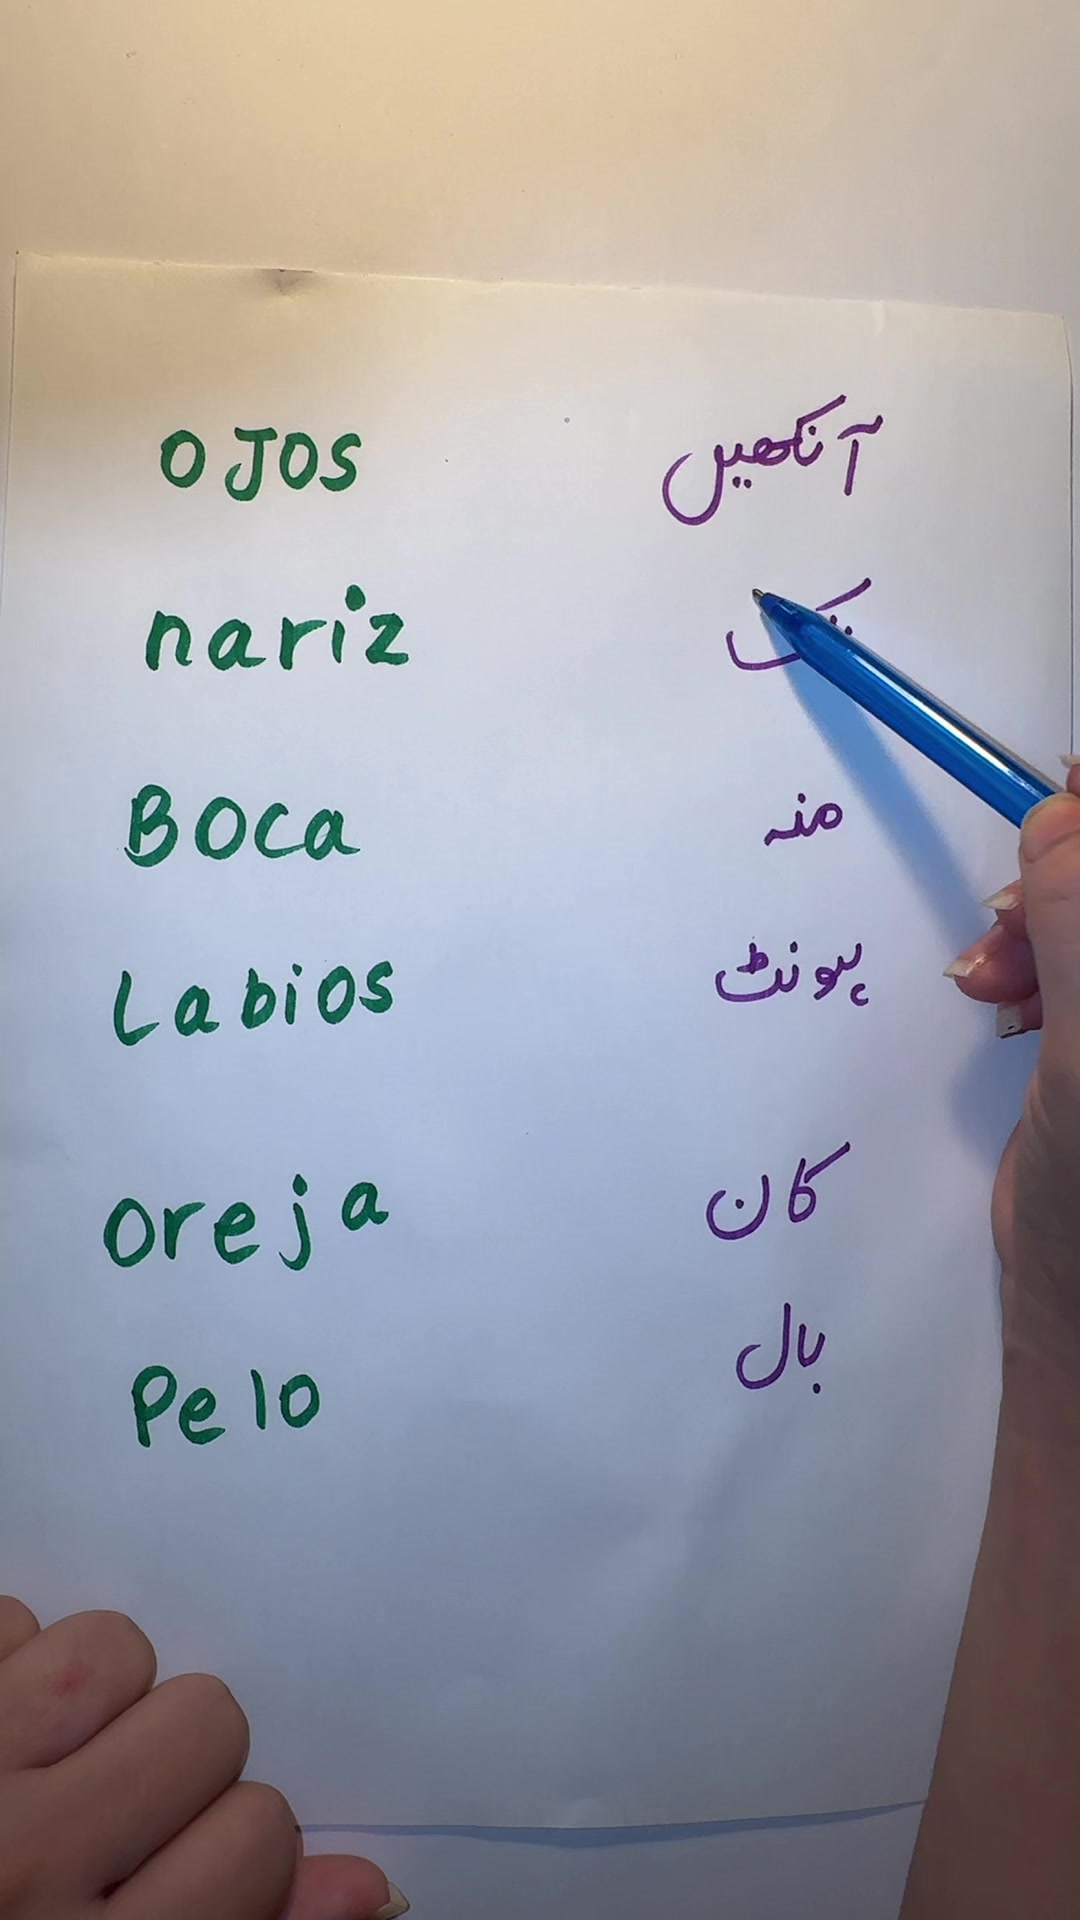 OJOS آنکھیں
nariz
Boca منہ
Labios ہونٹ
oreja کان
Pelo بال